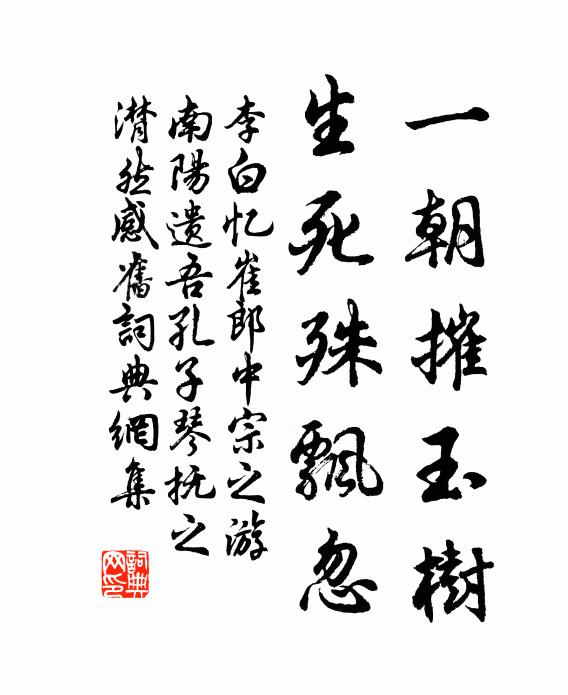 一朝摧玉樹
生死殊飄忽
李白忆崔郎中宗之游
南陽遗吾孔子琴抚之
潸然感舊詞典網集
詞典网印